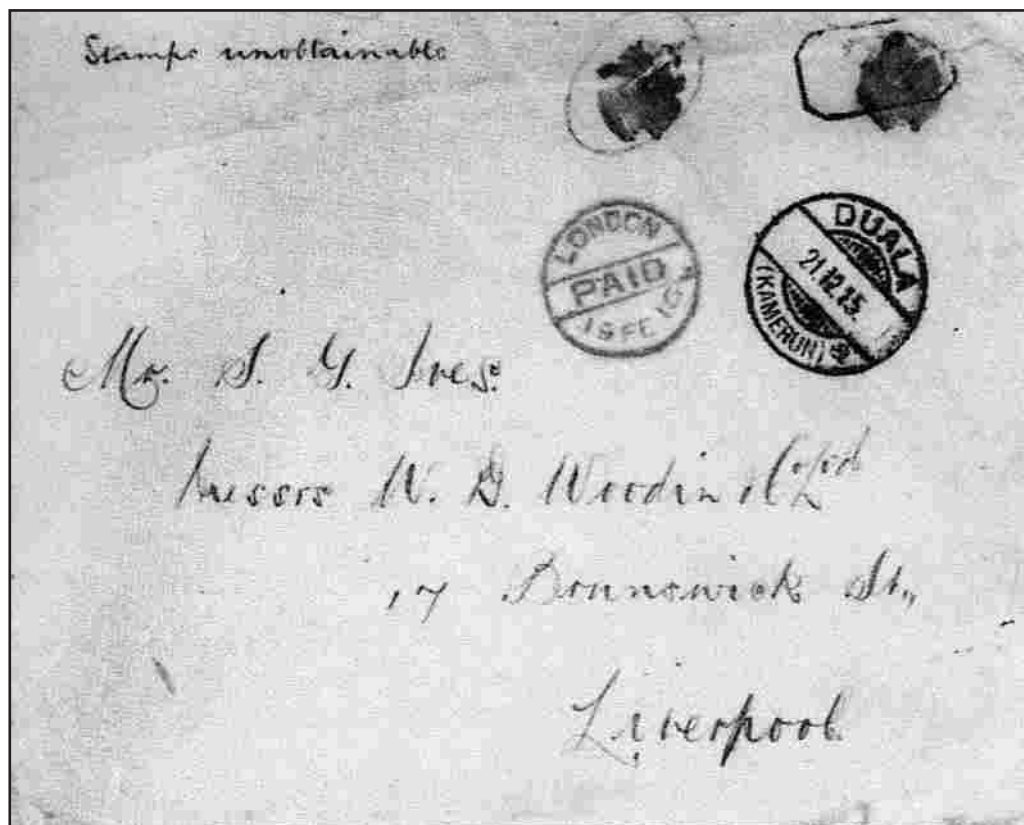 Stamps unobtainable
LONDON
PAID
DUALA
21.12.15.
(KAMERUN)
Mr. S. G. Ives.
Messrs W. D. Woodin & Co Ltd
17 Brunswick St.,
Liverpool.